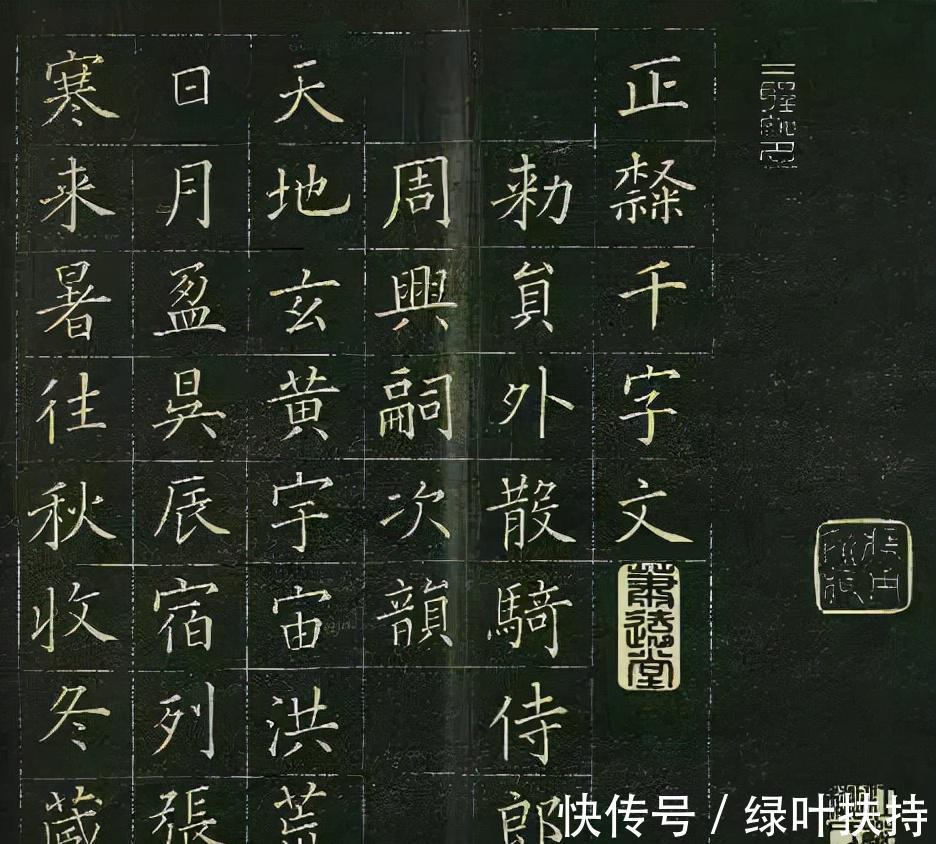 正隸千字文
勑員外散騎侍郎
周興嗣次韻
天地玄黄宇宙洪荒
日月盈昃辰宿列張
寒来暑往秋收冬藏
快传号 / 绿叶扶持